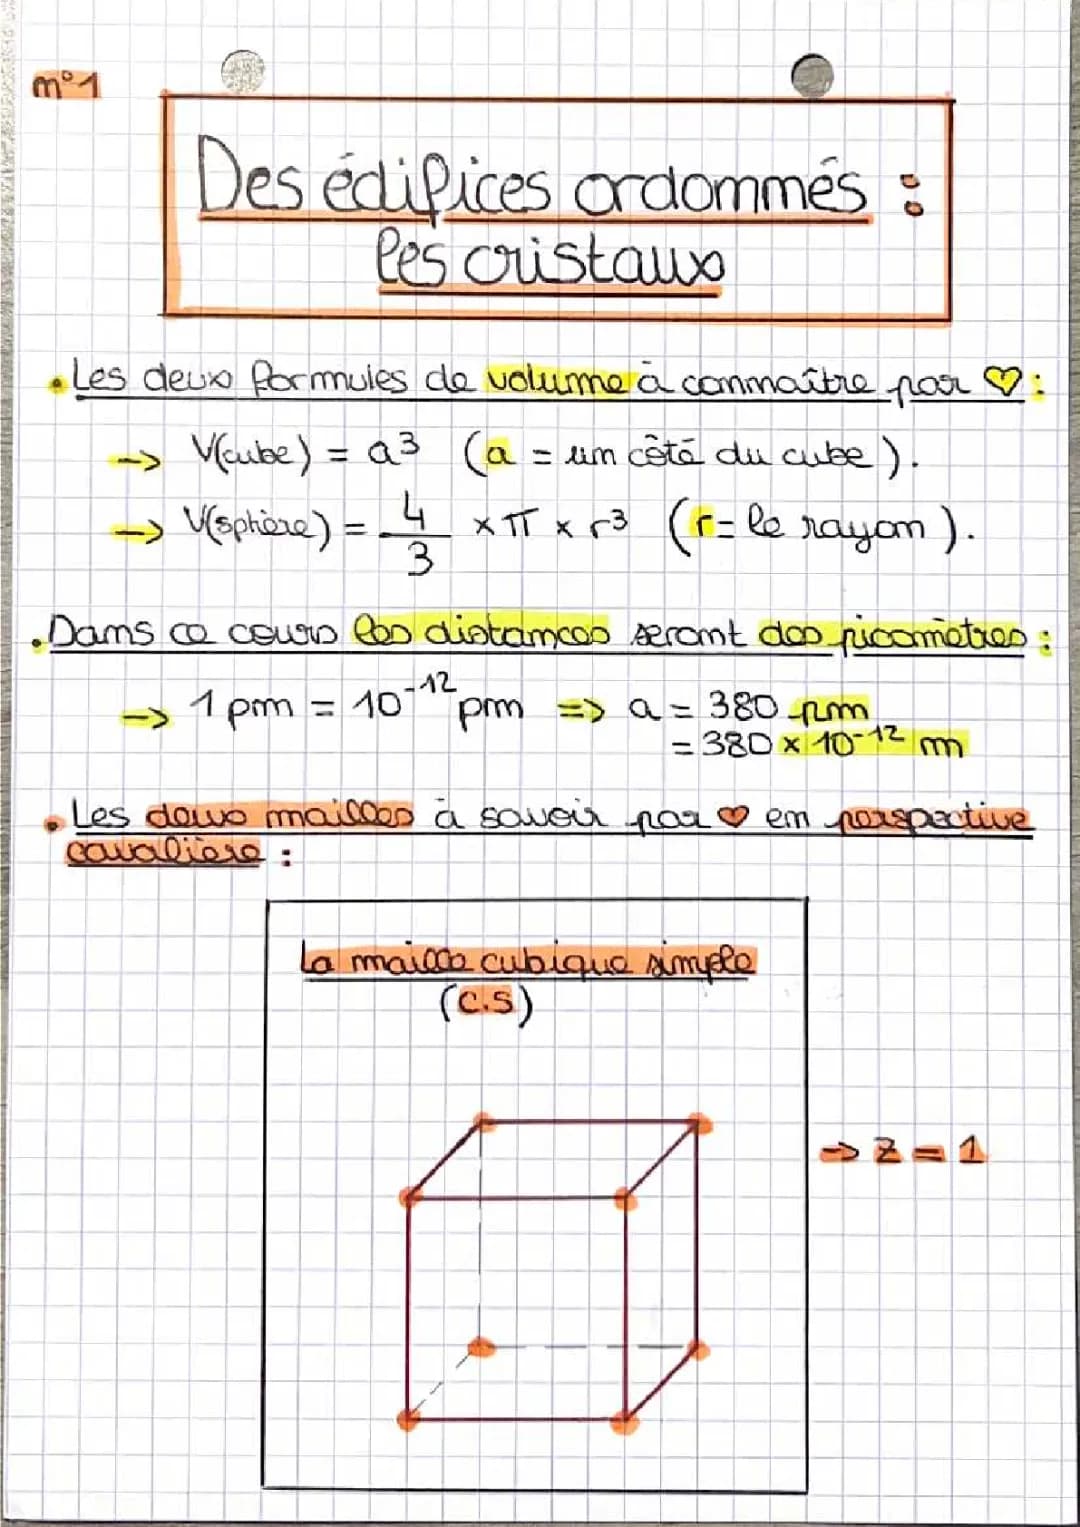 n°1
Des édifices ordonnés :
les cristaux
• Les deux formules de volume à connaître par ♡ :
-> V(cube) = a³ (a = un côté du cube).
-> V(sphère) = 4/3 × π × r³ (r = le rayon).
• Dans ce cours les distances seront des picomètres :
-> 1 pm = 10⁻¹² pm => a = 380 pm
= 380 × 10⁻¹² m
• Les deux mailles à savoir par ♡ en perspective
cavalière :
La maille cubique simple
(C.S)
-> Z = 1